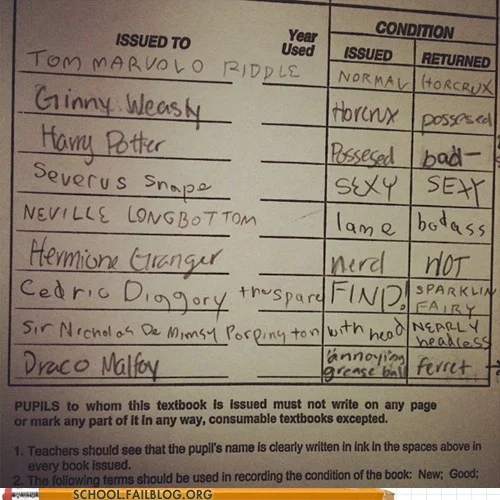 CONDITION
ISSUED TO Year Used ISSUED RETURNED
TOM MARVOLO RIDDLE NORMAL HORCRUX
Ginny Weasly Horcrux possesed
Harry Potter Possesed bad-
Severus Snape SEXY SEXY
NEVILLE LONGBOTTOM lame badass
Hermione Granger nerd NOT
Cedric Diggory the spare FINE! SPARKLIN FAIRY
Sir Nicholas De Mimsy Porpington with head NEARLY headless
Draco Malfoy annoying grease ball ferret
PUPILS to whom this textbook is issued must not write on any page
or mark any part of it in any way, consumable textbooks excepted.
1. Teachers should see that the pupil's name is clearly written in ink in the spaces above in
every book issued.
2. The following terms should be used in recording the condition of the book: New; Good;
SCHOOL.FAILBLOG.ORG